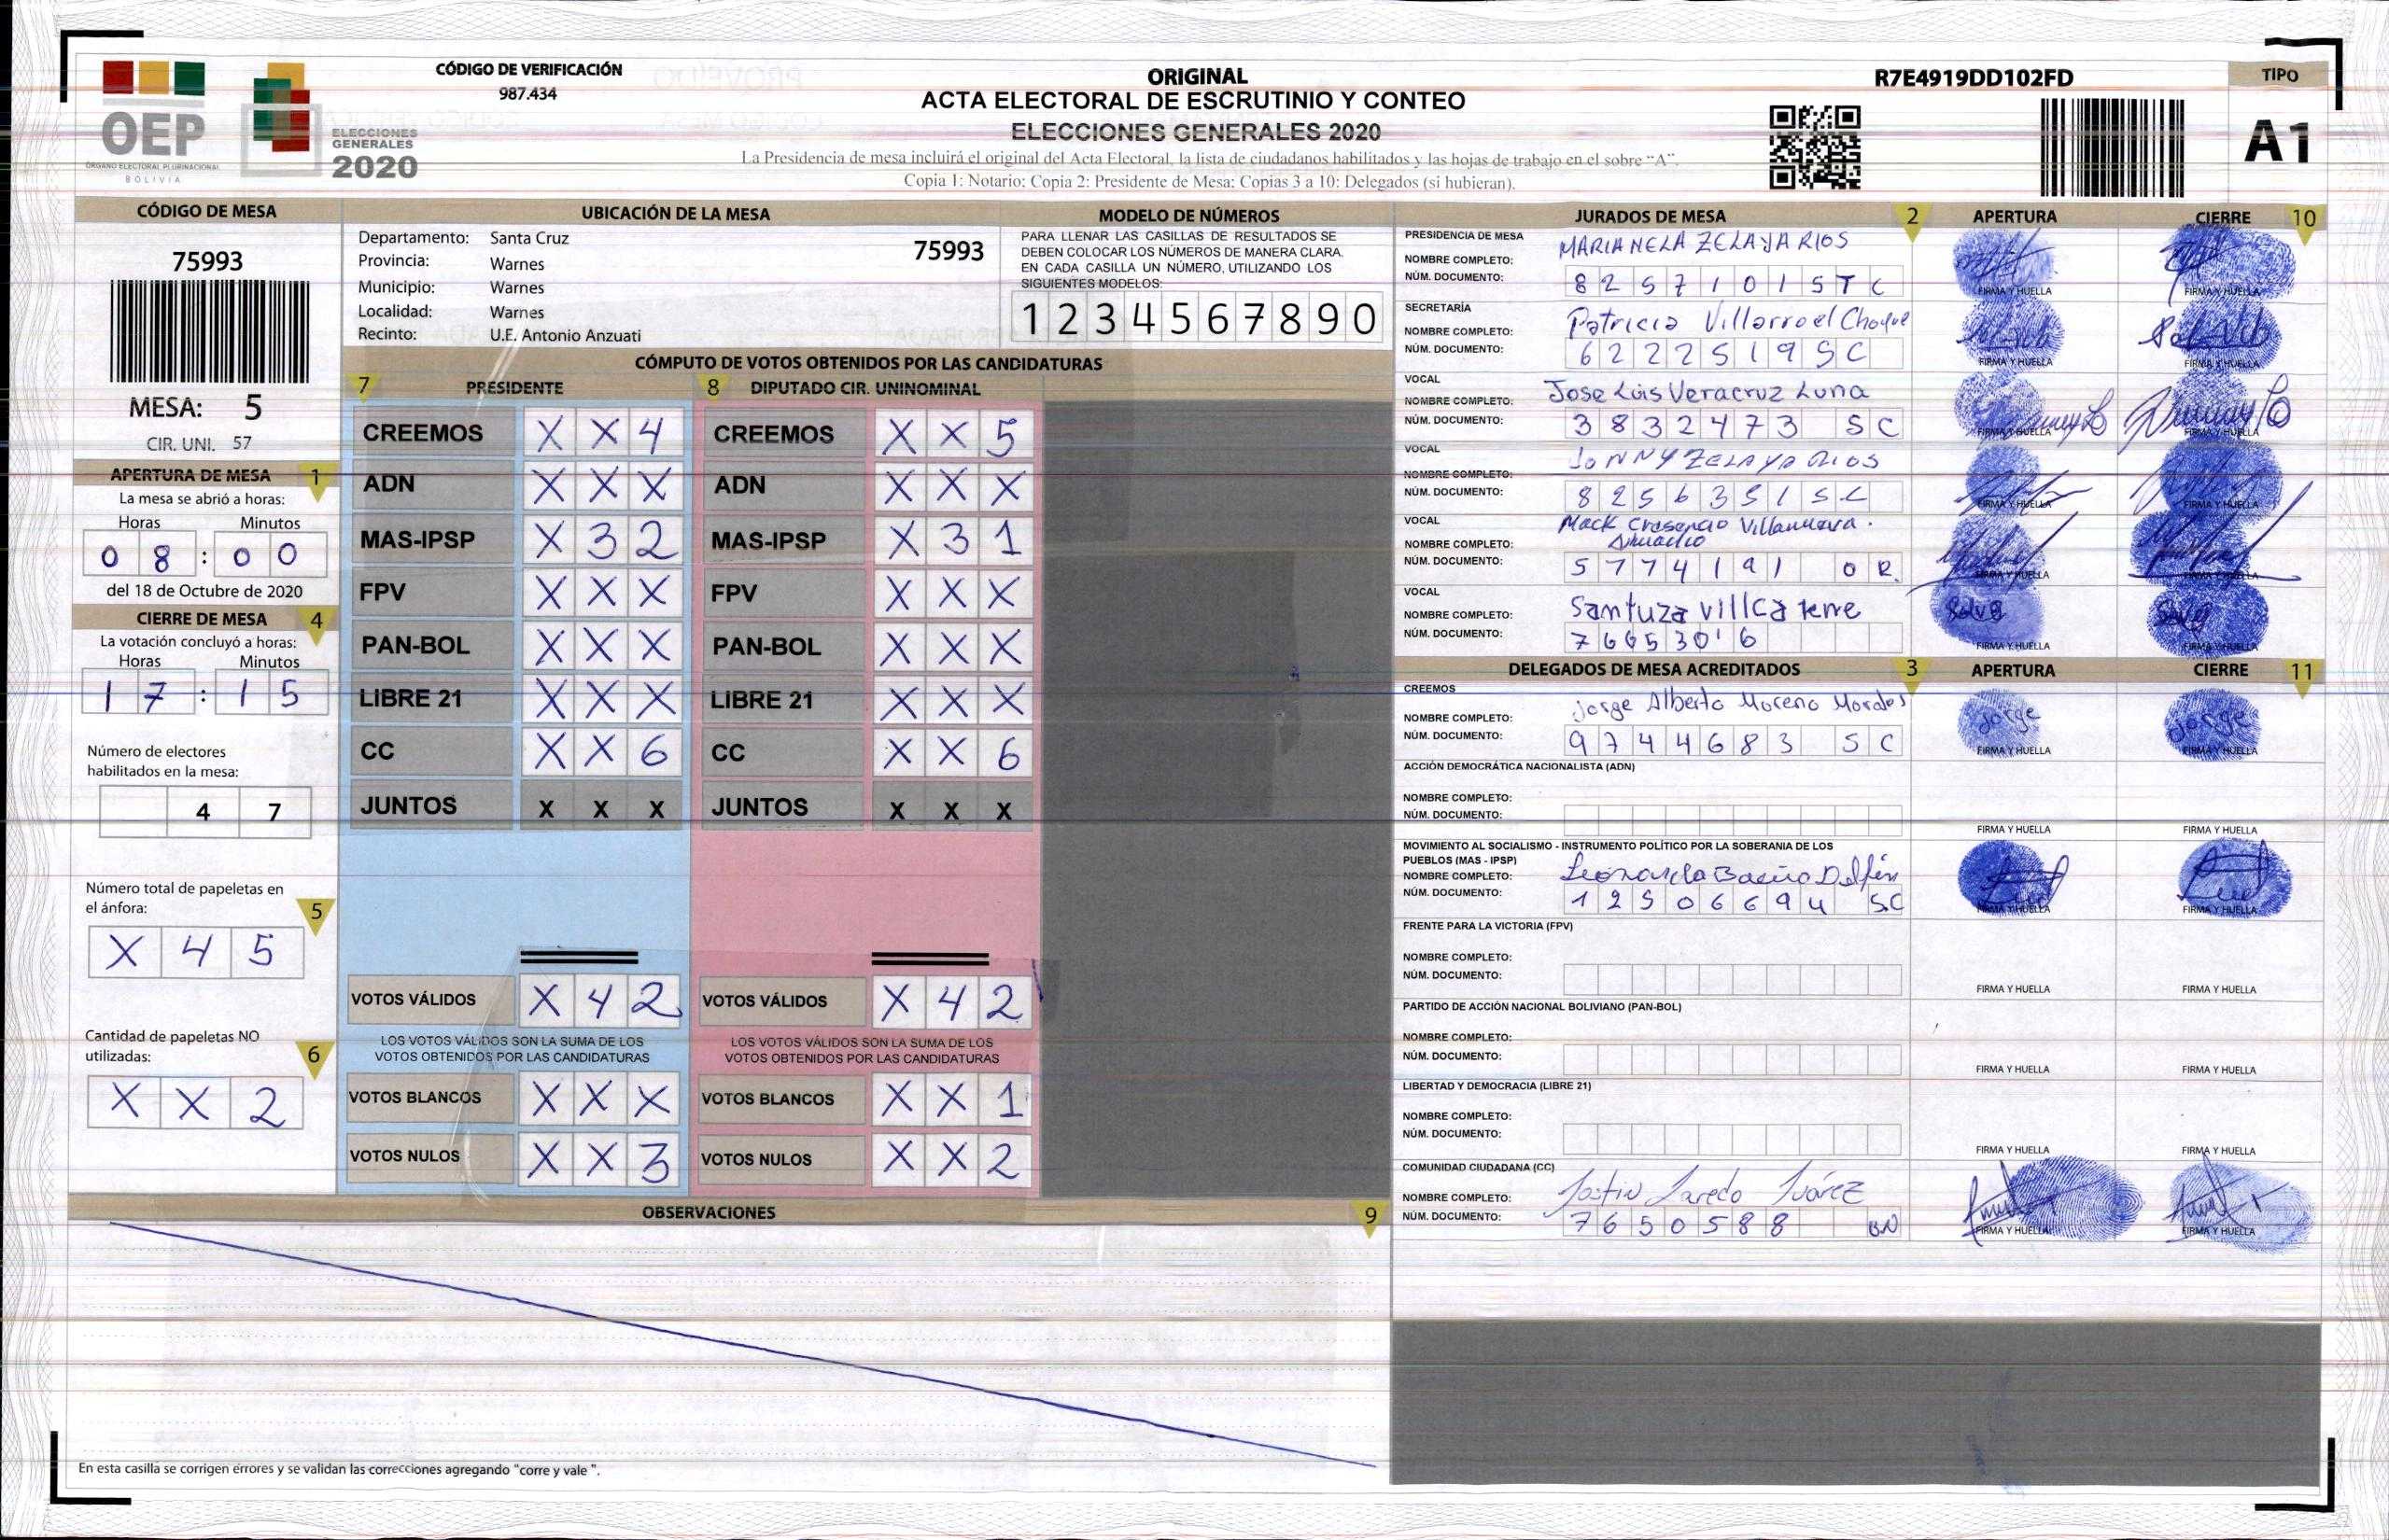 OEP
ÓRGANO ELECTORAL PLURINACIONAL
BOLIVIA
ELECCIONES
GENERALES
2020
CÓDIGO DE VERIFICACIÓN
987.434
ORIGINAL
ACTA ELECTORAL DE ESCRUTINIO Y CONTEO
ELECCIONES GENERALES 2020
La Presidencia de mesa incluirá el original del Acta Electoral, la lista de ciudadanos habilitados y las hojas de trabajo en el sobre "A".
Copia 1: Notario: Copia 2: Presidente de Mesa: Copias 3 a 10: Delegados (si hubieran).
R7E4919DD102FD
TIPO
A1
CÓDIGO DE MESA
75993
MESA: 5
CIR. UNI. 57
APERTURA DE MESA 1
La mesa se abrió a horas:
Horas Minutos
0 8 : 0 0
del 18 de Octubre de 2020
CIERRE DE MESA 4
La votación concluyó a horas:
Horas Minutos
1 7 : 1 5
Número de electores
habilitados en la mesa:
4 7
Número total de papeletas en
el ánfora: 5
X 4 5
Cantidad de papeletas NO
utilizadas: 6
X X 2
UBICACIÓN DE LA MESA
Departamento: Santa Cruz 75993
Provincia: Warnes
Municipio: Warnes
Localidad: Warnes
Recinto: U.E. Antonio Anzuati
MODELO DE NÚMEROS
PARA LLENAR LAS CASILLAS DE RESULTADOS SE
DEBEN COLOCAR LOS NÚMEROS DE MANERA CLARA.
EN CADA CASILLA UN NÚMERO, UTILIZANDO LOS
SIGUIENTES MODELOS:
1 2 3 4 5 6 7 8 9 0
CÓMPUTO DE VOTOS OBTENIDOS POR LAS CANDIDATURAS
7 PRESIDENTE 8 DIPUTADO CIR. UNINOMINAL
CREEMOS X X 4 CREEMOS X X 5
ADN X X X ADN X X X
MAS-IPSP X 3 2 MAS-IPSP X 3 1
FPV X X X FPV X X X
PAN-BOL X X X PAN-BOL X X X
LIBRE 21 X X X LIBRE 21 X X X
CC X X 6 CC X X 6
JUNTOS X X X JUNTOS X X X
VOTOS VÁLIDOS X 4 2 VOTOS VÁLIDOS X 4 2
LOS VOTOS VÁLIDOS SON LA SUMA DE LOS LOS VOTOS VÁLIDOS SON LA SUMA DE LOS
VOTOS OBTENIDOS POR LAS CANDIDATURAS VOTOS OBTENIDOS POR LAS CANDIDATURAS
VOTOS BLANCOS X X X VOTOS BLANCOS X X 1
VOTOS NULOS X X 3 VOTOS NULOS X X 2
OBSERVACIONES 9
En esta casilla se corrigen errores y se validan las correcciones agregando "corre y vale ".
JURADOS DE MESA 2 APERTURA CIERRE 10
PRESIDENCIA DE MESA
NOMBRE COMPLETO: MARIANELA ZELAYA RIOS
NÚM. DOCUMENTO: 8 2 5 7 1 0 1 S T C
FIRMA Y HUELLA FIRMA Y HUELLA
SECRETARÍA
NOMBRE COMPLETO: Patricia Villarroel Choque
NÚM. DOCUMENTO: 6 2 2 2 5 1 9 S C
FIRMA Y HUELLA FIRMA Y HUELLA
VOCAL
NOMBRE COMPLETO: Jose Luis Veracruz Luna
NÚM. DOCUMENTO: 3 8 3 2 4 7 3 S C
FIRMA Y HUELLA FIRMA Y HUELLA
VOCAL
NOMBRE COMPLETO: JONNY ZELAYA RIOS
NÚM. DOCUMENTO: 8 2 5 6 3 5 1 S C
FIRMA Y HUELLA FIRMA Y HUELLA
VOCAL
NOMBRE COMPLETO: Mack Crasencio Villanueva.
NÚM. DOCUMENTO: 5 7 7 4 1 9 1 O R.
FIRMA Y HUELLA FIRMA Y HUELLA
VOCAL
NOMBRE COMPLETO: Santuza villca
NÚM. DOCUMENTO: 7 6 6 5 3 0 1 6
FIRMA Y HUELLA FIRMA Y HUELLA
DELEGADOS DE MESA ACREDITADOS 3 APERTURA CIERRE 11
CREEMOS
NOMBRE COMPLETO: Jorge Alberto Moreno Morales
NÚM. DOCUMENTO: 9 7 4 4 6 8 3 S C
Jorge Jorge
FIRMA Y HUELLA FIRMA Y HUELLA
ACCIÓN DEMOCRÁTICA NACIONALISTA (ADN)
NOMBRE COMPLETO:
NÚM. DOCUMENTO:
FIRMA Y HUELLA FIRMA Y HUELLA
MOVIMIENTO AL SOCIALISMO - INSTRUMENTO POLÍTICO POR LA SOBERANIA DE LOS
PUEBLOS (MAS - IPSP)
NOMBRE COMPLETO: Leonarda
NÚM. DOCUMENTO: 1 2 5 0 6 6 9 4 S.C
FIRMA Y HUELLA FIRMA Y HUELLA
FRENTE PARA LA VICTORIA (FPV)
NOMBRE COMPLETO:
NÚM. DOCUMENTO:
FIRMA Y HUELLA FIRMA Y HUELLA
PARTIDO DE ACCIÓN NACIONAL BOLIVIANO (PAN-BOL)
NOMBRE COMPLETO:
NÚM. DOCUMENTO:
FIRMA Y HUELLA FIRMA Y HUELLA
LIBERTAD Y DEMOCRACIA (LIBRE 21)
NOMBRE COMPLETO:
NÚM. DOCUMENTO:
FIRMA Y HUELLA FIRMA Y HUELLA
COMUNIDAD CIUDADANA (CC)
NOMBRE COMPLETO: Laredo Suárez
NÚM. DOCUMENTO: 7 6 5 0 5 8 8 BN
FIRMA Y HUELLA FIRMA Y HUELLA